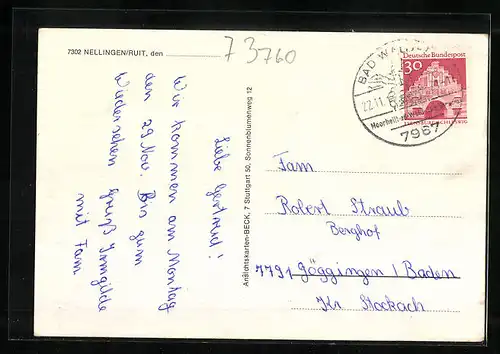 7302 NELLINGEN/RUIT, den
73760
Liebe Gertrud!
Wir kommen am Montag
den 29 Nov. Bis zum
Wiedersehen grüßt Irmgilde
mit Fam
Ansichtskarten-BECK, 7 Stuttgart 50, Sonnenblumenweg 12
BAD
22.11.
Moorheil
7967
Deutsche Bundespost
30
Fam.
Robert Straub
Berghof
7791 Göggingen / Baden
Kr Stockach